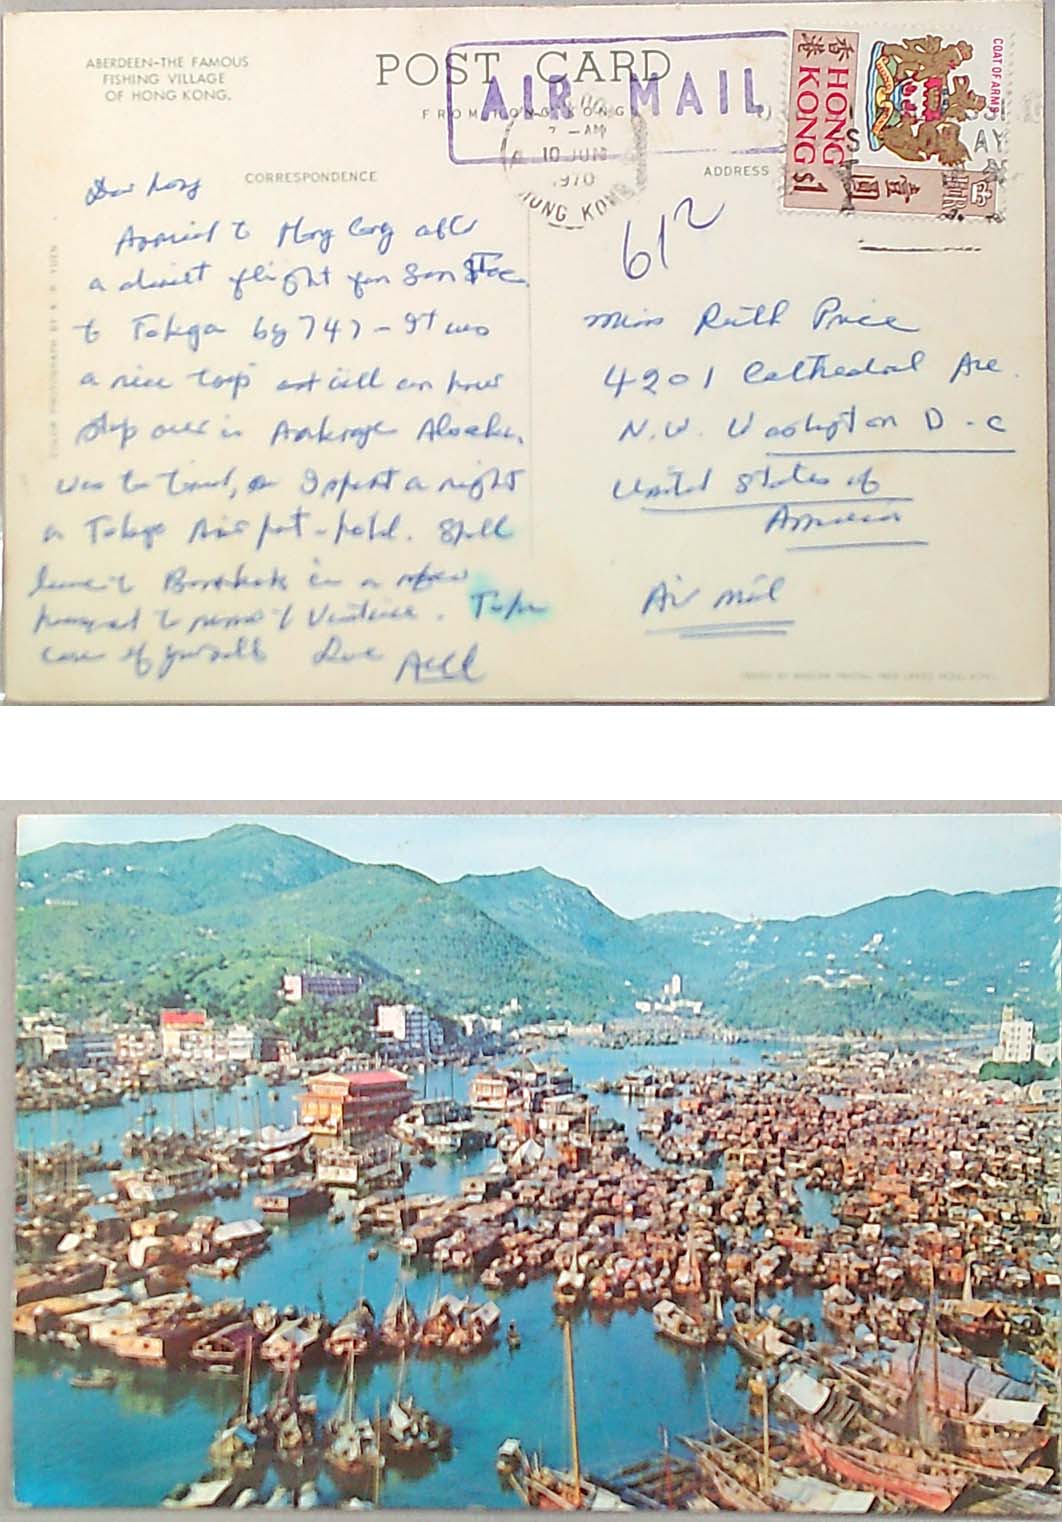 ABERDEEN-THE FAMOUS
FISHING VILLAGE
OF HONG KONG.
POST CARD
FROM HONG KONG
AIR MAIL
7 -AM
10 JUN
1970
HONG KONG
香港
HONG KONG $1
壹圓
COAT OF ARMS
CORRESPONDENCE
ADDRESS
COLOR PHOTOGRAPH BY
Dear
Arrived to Hong Kong after
a direct flight from San
to Tokyo by 747 - It was
a nice trip and with an hour
stop over in Alaska,
was too tired, so I spent a night
in Tokyo Air port-hotel. Shall
leave to Bangkok in a
to Vientiane. Take
care of yourself Love
612
Miss Ruth Price
4201 Cathedral Ave.
N.W. Washington D.C
United States of
America
Air mail